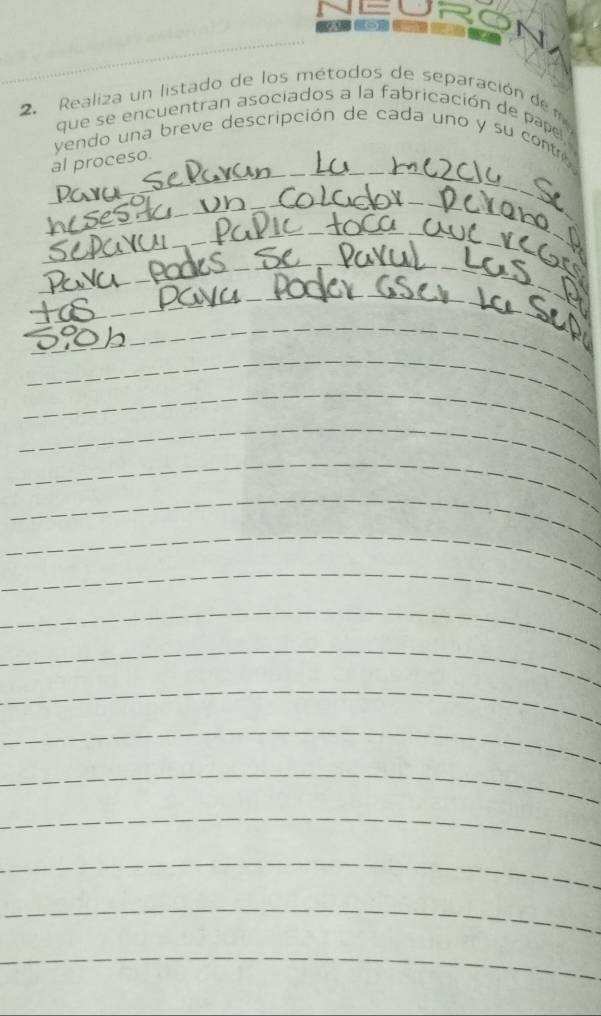 NEURONA
2. Realiza un listado de los métodos de separación de
que se encuentran asociados a la fabricación de papel
yendo una breve descripción de cada uno y su
al proceso.
Para separan La mezcla se
nesesita un Colador Perano
separar Paple toca que
Para podes se Parul Las
tas para Poder aser la
sion